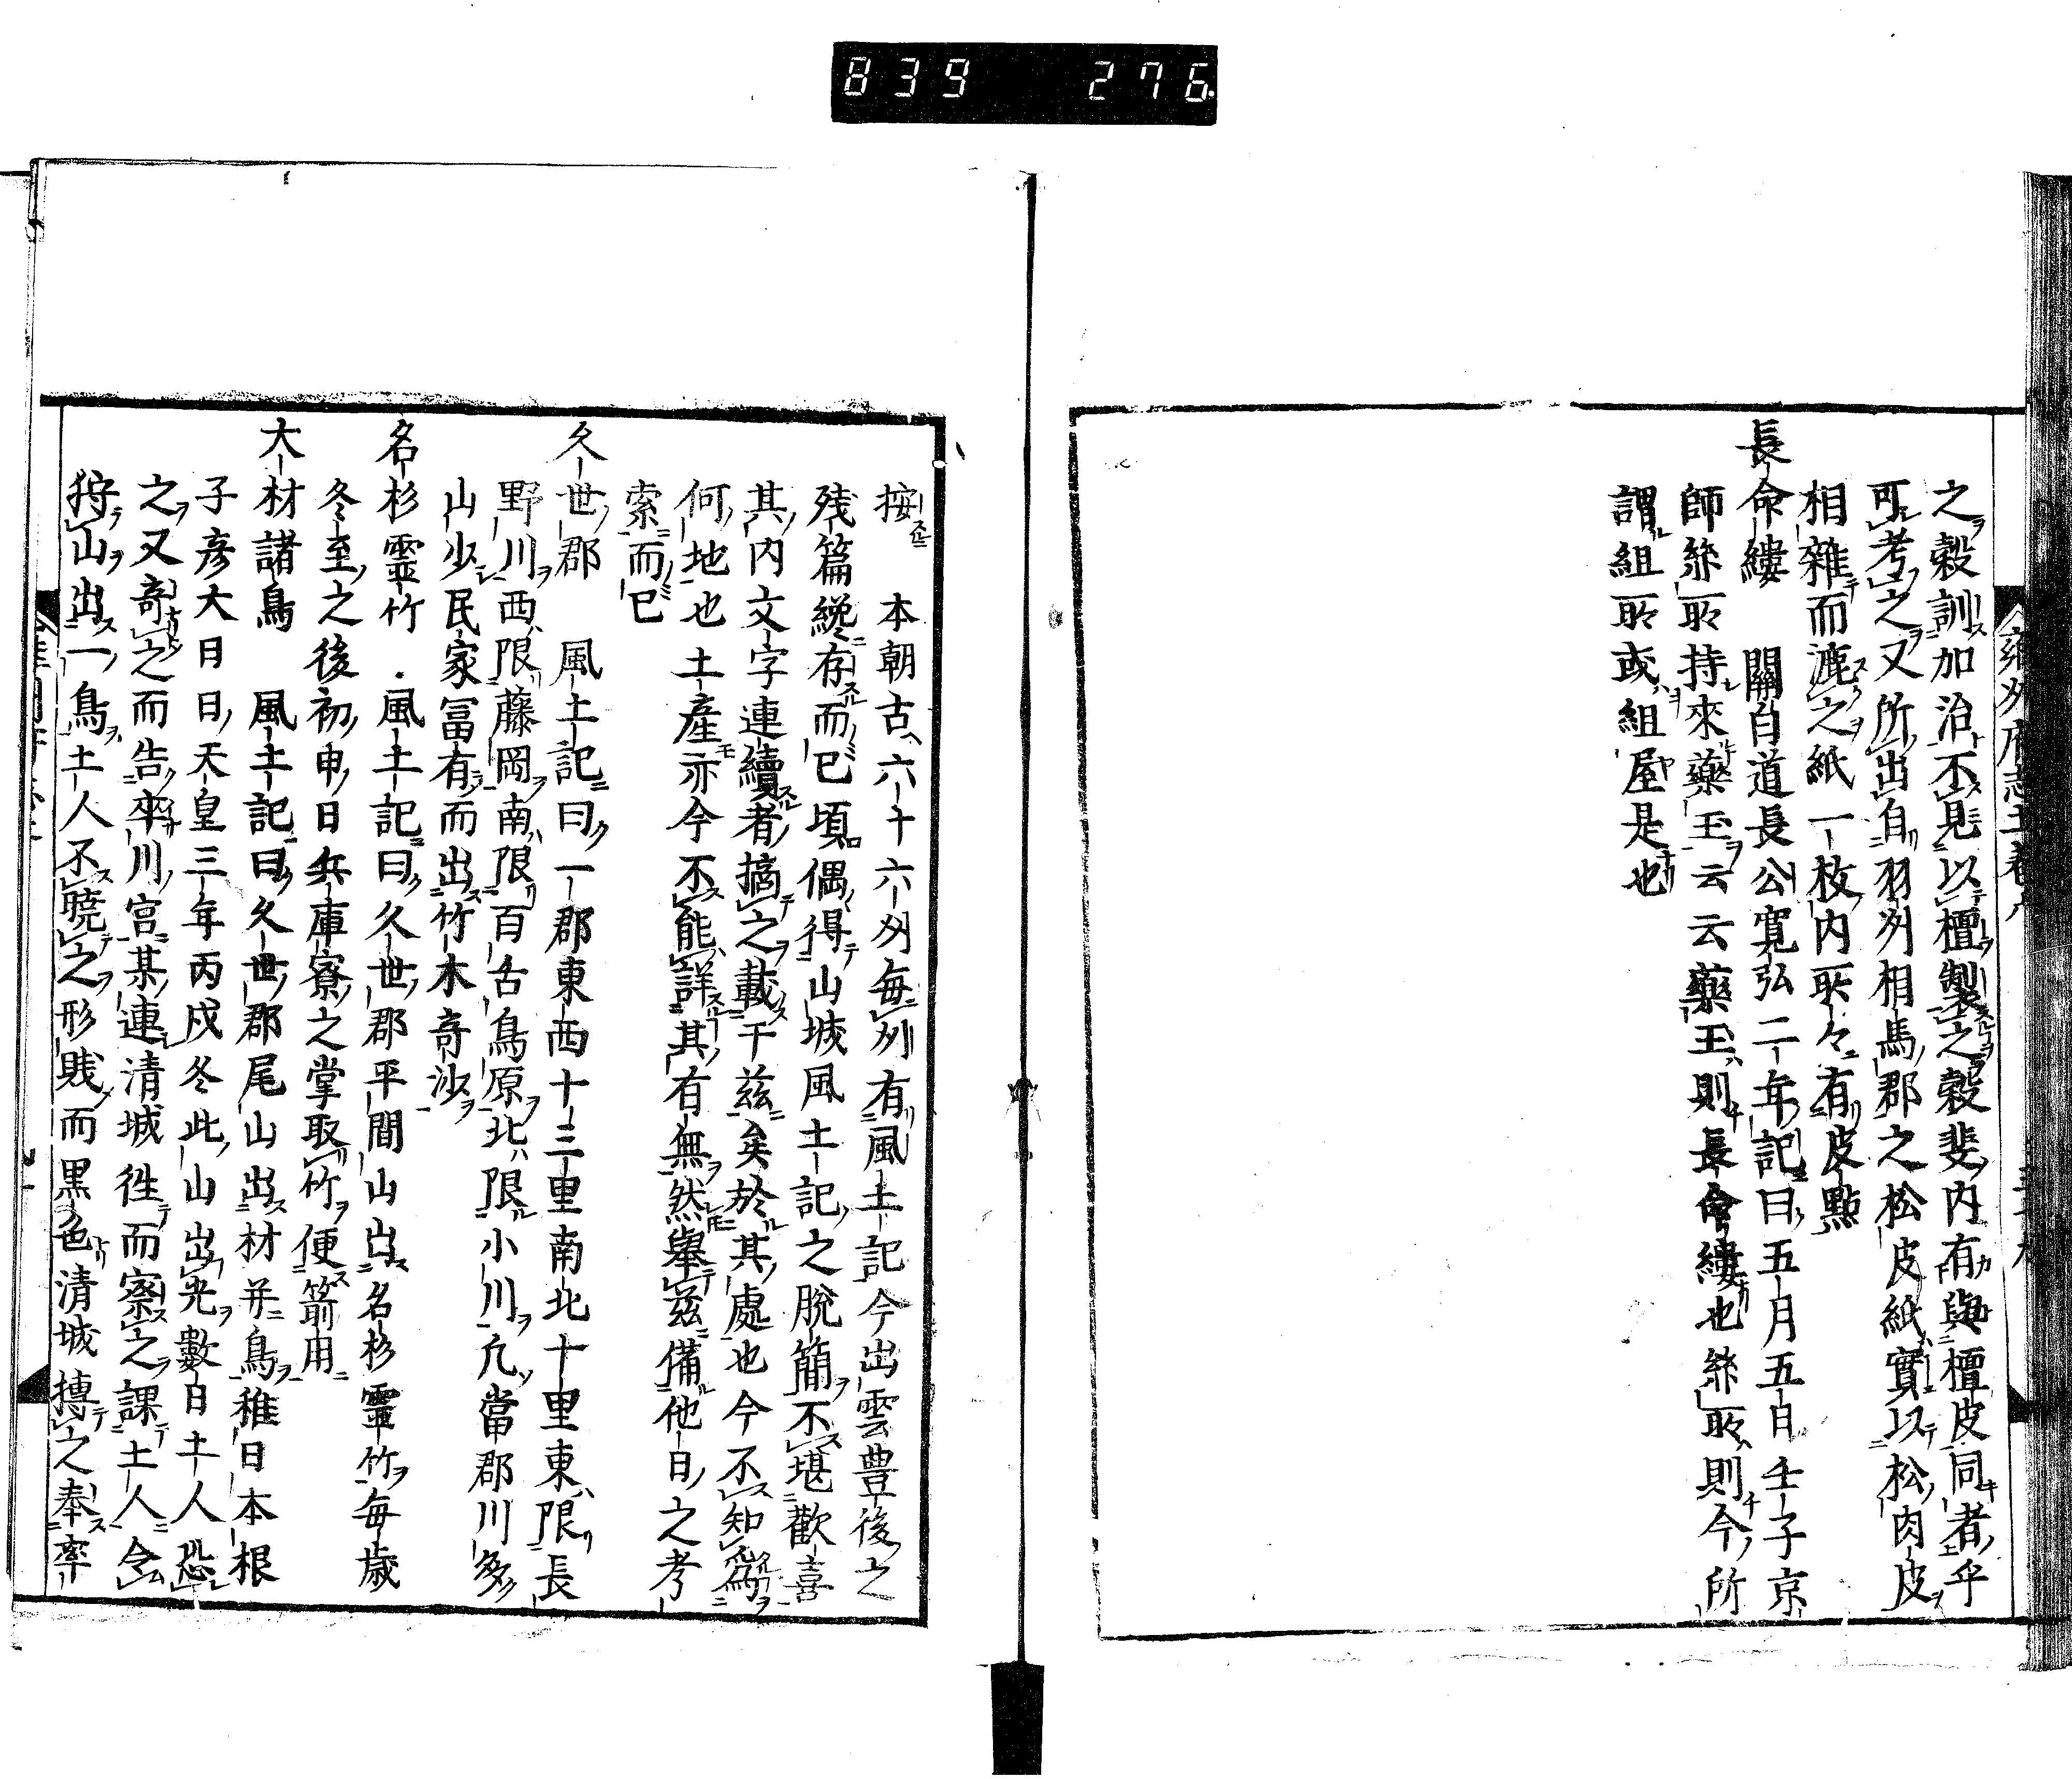 839 276
之穀訓加治不見以檀製之穀斐内有與檀皮同者乎
可考之又所出自羽州相馬郡之松皮紙實以松肉皮
相雜而漉之紙一枚内所々有皮點
長命縷 關白道長公寛弘二年記曰五月五日壬子京
師絲所持來藥玉云云藥玉則長命縷也絲所則今所
謂組所或組屋是也
按 本朝古六十六州毎州有風土記今出雲豊後之
残篇纔存而已頃偶得山城風土記之脱簡不堪歡喜
其内文字連續者摘之載于兹矣於其處也今不知爲
何地也土產亦今不能詳其有無然舉兹備他日之考
索而已
久世郡 風土記曰一郡東西十三里南北十里東限長
野川西限藤岡南限百舌鳥原北限小川凢當郡川多
山少民家冨有而出竹木奇沙
名杉靈竹 風土記曰久世郡平間山出名杉靈竹毎歳
冬至之後初申日兵庫寮之掌取竹便箭用
大材諸鳥 風土記曰久世郡尾山出材并鳥稚日本根
子彦大日日天皇三年丙戌冬此山出光數日土人恐
之又奇之而告率川宮某連清城徃而察之課土人令
狩山出一鳥土人不曉之形賎而黒色清城摶之奉率